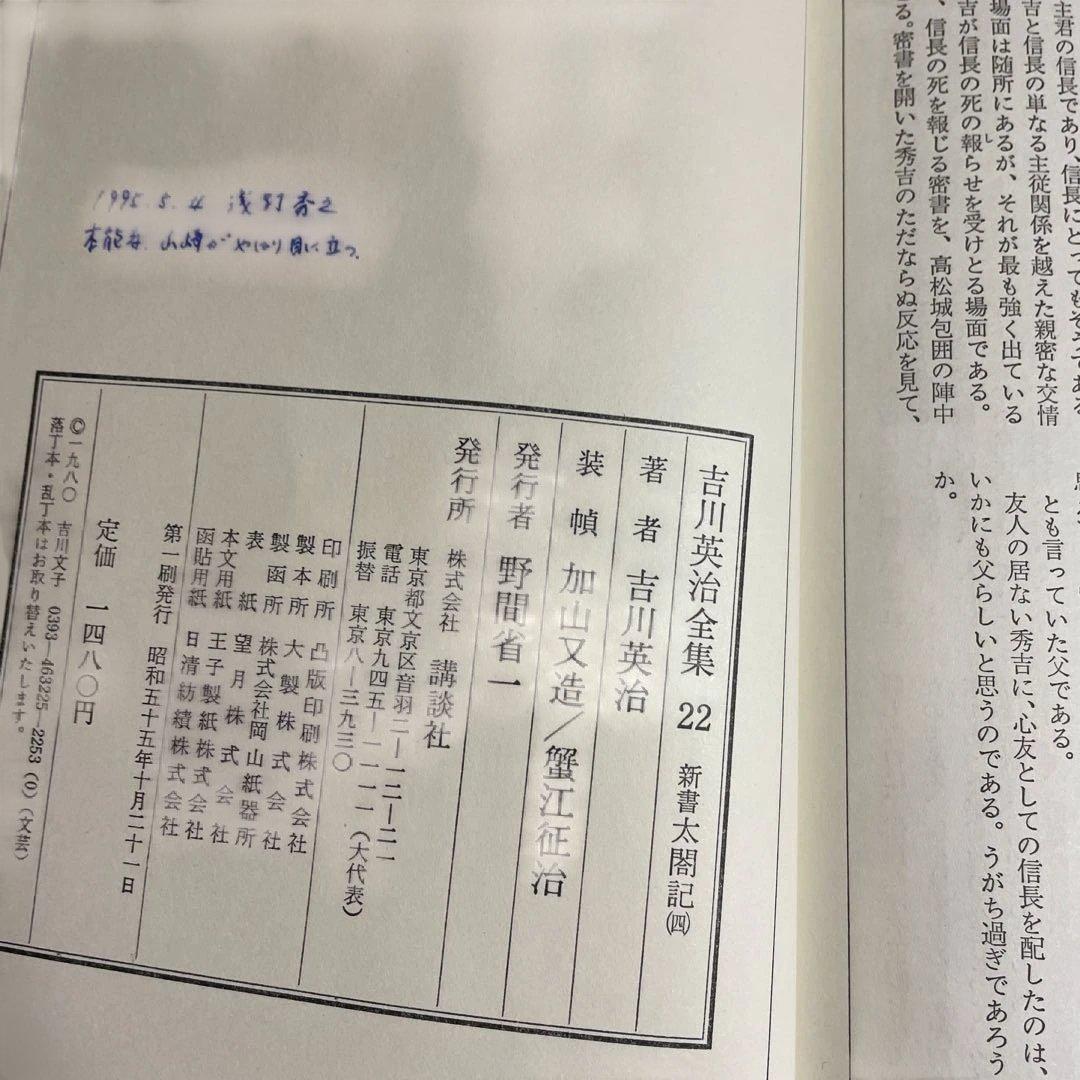 主君の信長であり、信長にとってもそうである
吉と信長の単なる主従関係を越えた親密な交情
場面は随所にあるが、それが最も強く出ている
吉が信長の死の報らせを受けとる場面である。
、信長の死を報じる密書を、高松城包囲の陣中
る。密書を開いた秀吉のただならぬ反応を見て、
とも言っていた父である。
友人の居ない秀吉に、心友としての信長を配したのは、
いかにも父らしいと思うのである。うがち過ぎであろう
か。
1995.5.4
本能寺、山崎がやはり目に立つ。
吉川英治全集 22 新書太閤記(四)
著者 吉川英治
装幀 加山又造/蟹江征治
発行者 野間省一
発行所 株式会社 講談社
東京都文京区音羽二―一二―二一
電話 東京九四五―一一一一(大代表)
振替 東京八―三九三〇
印刷所 凸版印刷株式会社
製本所 大製株式会社
製函所 株式会社岡山紙器所
表紙 望月株式会社
本文用紙 王子製紙株式会社
函貼用紙 日清紡績株式会社
第一刷発行 昭和五十五年十月二十一日
定価 一四八〇円
©一九八〇 吉川文子 0393―463225―2253(0)(文芸)
落丁本・乱丁本はお取り替えいたします。